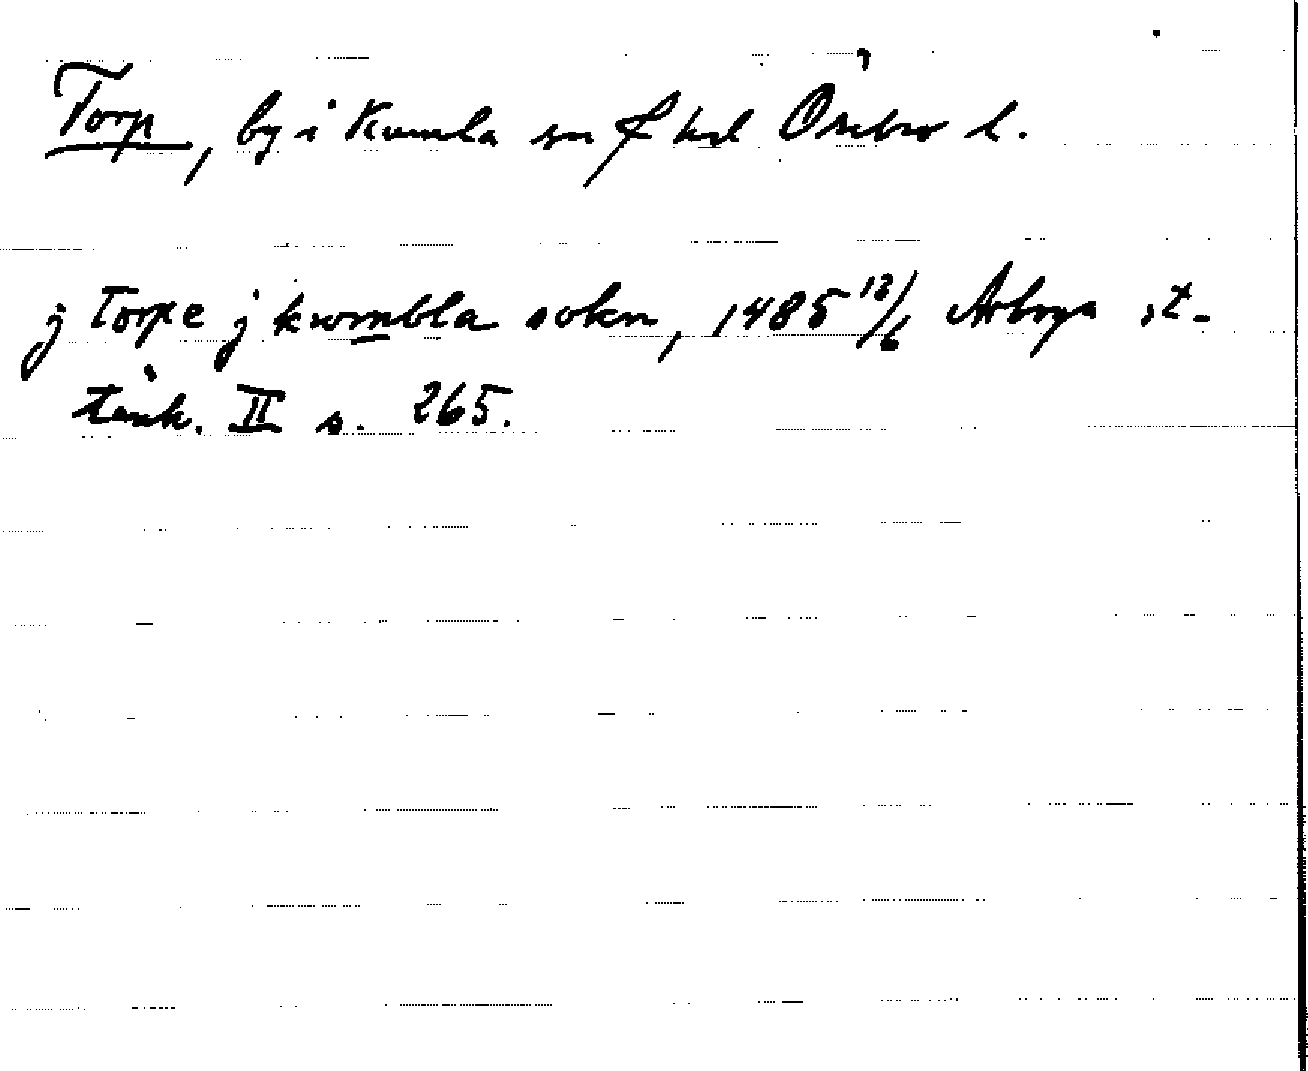 Torp, by i Kumla sn f hd Örebro l.
j Torpe j kwmbla sokn, 1485 12/6 Arboga st-
tänk. II s. 265.